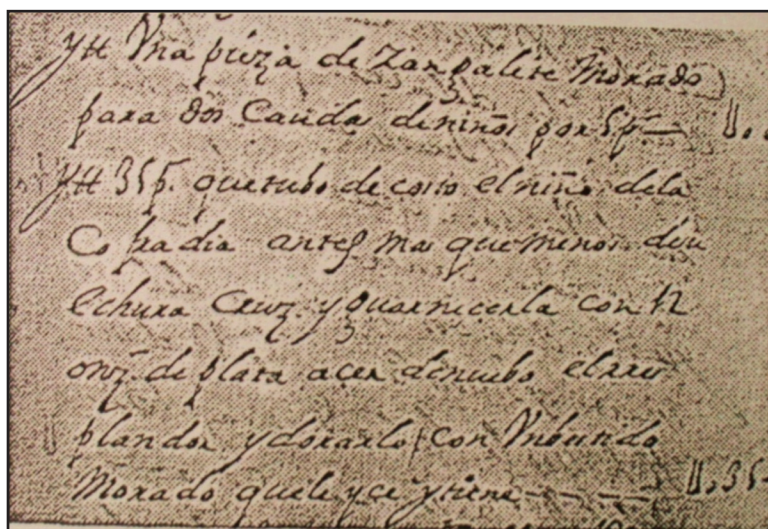 Ytt Vna pieza de Zarzalete Morado
para dos Caudas de niños por 5 p.—
Ytt 35 p. que tubo de costo el niño dela
Cofradia antes mas que menos desu
Echura Cruz y guarnicerla con 12
onz. de plata acer denuebo el rres
plandor y dorarlo con Vn bundo
Morado que le yce y tiene ---- U.35